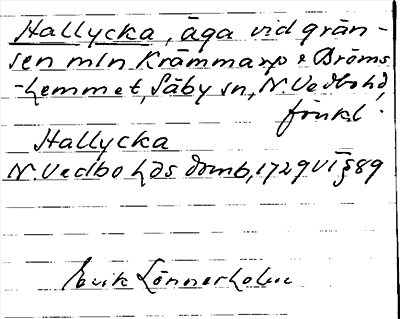 Hallycka, äga vid grän-
sen mln Krämmarp & Bröms-
-hemmet, Säby sn, N. Vedbo hd,
fönkl.
Hallycka
N. Vedbo hds domb, 1729 VI § 89
Erik Lönnerholm